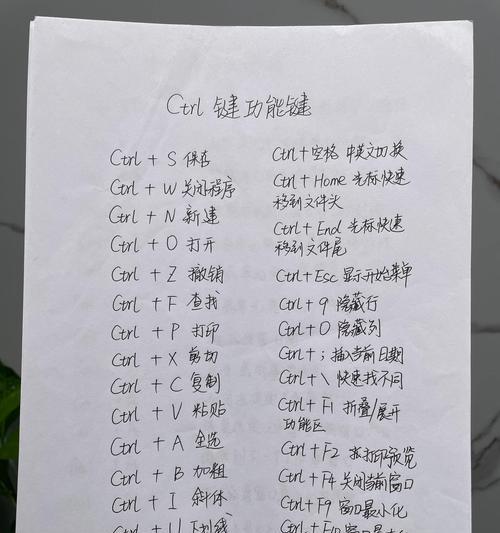 Ctrl 键功能键
Ctrl + S 保存
Ctrl + W 关闭程序
Ctrl + N 新建
Ctrl + O 打开
Ctrl + Z 撤销
Ctrl + F 查找
Ctrl + P 打印
Ctrl + X 剪切
Ctrl + C 复制
Ctrl + V 粘贴
Ctrl + A 全选
Ctrl + B 加粗
Ctrl + I 斜体
Ctrl + U 下划线
Ctrl + 空格 中英文切换
Ctrl + Home 光标快速
移到文件头
Ctrl + End 光标快速
移到文件尾
Ctrl + Esc 显示开始菜单
Ctrl + 9 隐藏行
Ctrl + 0 隐藏列
Ctrl + ; 插入当前日期
Ctrl + \ 快速找不同
Ctrl + F1 折叠/展开
功能区
Ctrl + F2 打印预览
Ctrl + F4 关闭当前窗口
Ctrl + F9 窗口最小化
Ctrl + F10 窗口最大